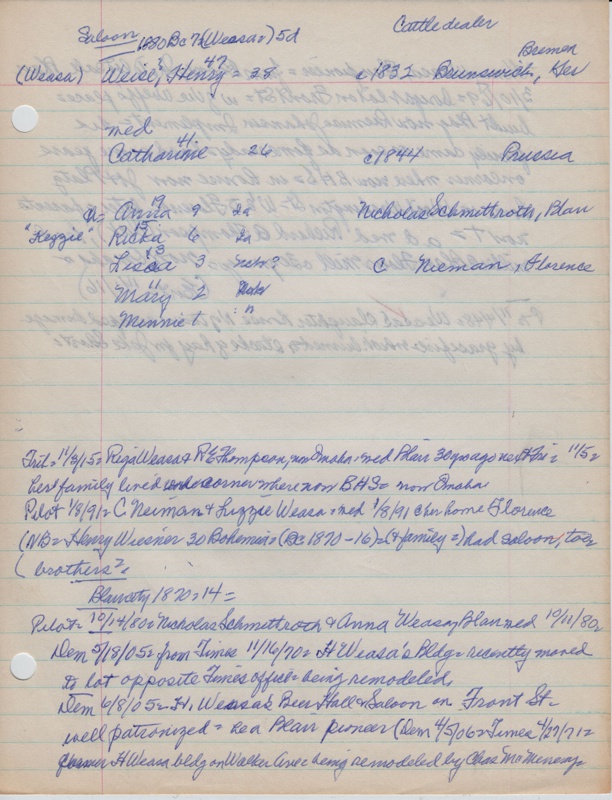 Saloon 1880 Bc 72 (Weasa=) 5d Cattle dealer
Bremen
(Weasa) Weise, Henry = 38 47 c1832 Brunswick, Ger
med
Catharine 26 41 c1844 Prussia
Ch= Anna 9 19 Ia Nicholas Schmettroth, Blair
"Kezzie" Ricka 6 15 Ia
Lissa 3 13 Nebr? C Nieman, Florence
Mary 2 11
Minnie 1 "
Trib= 11/3/15= Rega Weasa & R E Thompson, now Omaha= med Blair 30 yrs ago next Fri = 11/5=
her family lived corner where now BHS= now Omaha
Pilot 1/8/91= C Neiman & Lizzie Weasa= med 1/8/91 @ her home Florence
(NB= Henry Wiesner 30 Bohemia= (Bc 1870-16)= (& family=) had saloon, too=
( brothers?=
Blair city 1870=14=
Pilot= 10/14/80= Nicholas Schmettroth & Anna Weasa, Blair med 10/11/80=
Dem 5/18/05= from Times 11/16/70= H Weasa's Bldg= recently moved
to lot opposite Times office= being remodeled=
Dem 6/8/05= H. Weasa's Beer Hall & Saloon on Front St=
well patronized = a Blair pioneer (Dem 4/5/06= Times 4/27/71=
former H Weasa bldg on Walker Ave= being remodeled by Chas McMenemy=